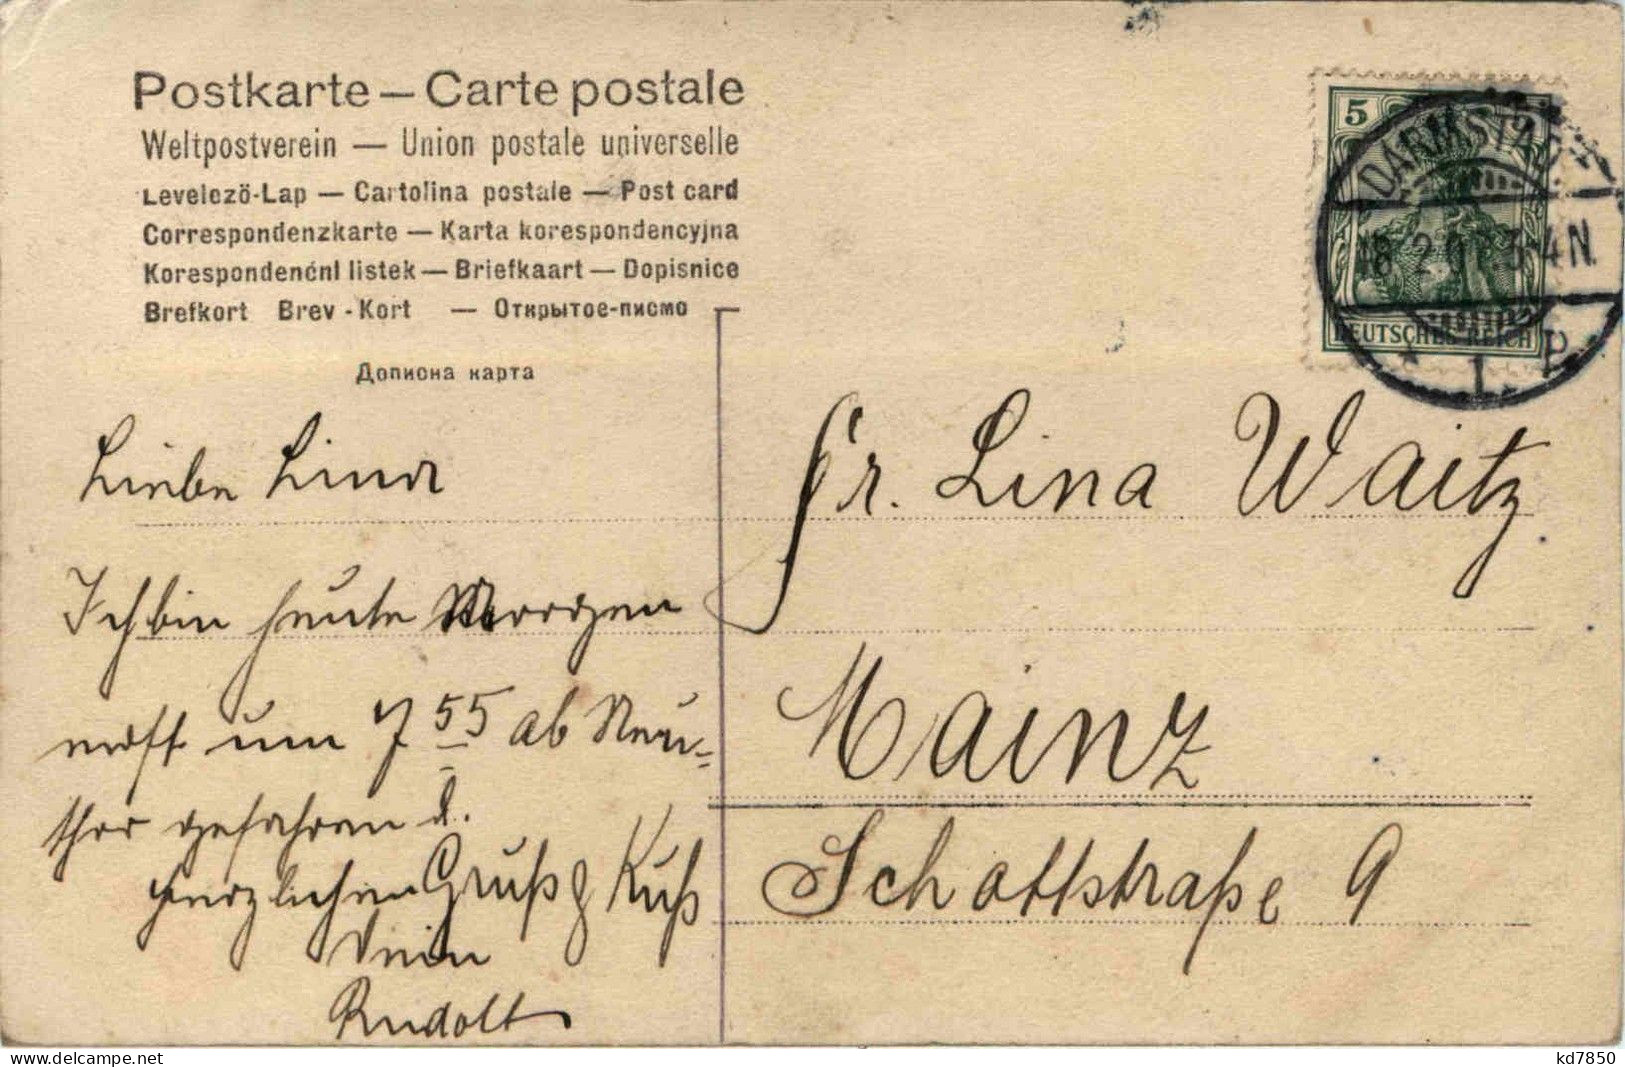 Postkarte — Carte postale
Weltpostverein — Union postale universelle
Levelező-Lap — Cartolina postale — Post card
Correspondenzkarte — Karta korespondencyjna
Korespondenční lístek — Briefkaart — Dopisnice
Brefkort Brev-Kort — Открытое-письмо
Дописна карта
5
DARMSTADT
18.2.0 3-4N.
* 1 P.
DEUTSCHES REICH
Liebe Lina
Ich bin heute Morgen
noch um 7 55 ab Neu-
thor gefahren d.
herzlichen Gruß & Kuß
Dein
Rudolf
Fr. Lina Waitz
Mainz
Schottstraße 9
www.delcampe.net
kd7850